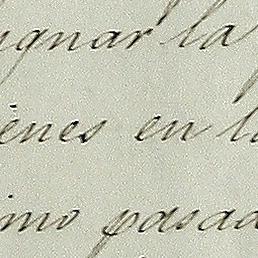 ignar la
ienes en l
imo pasad